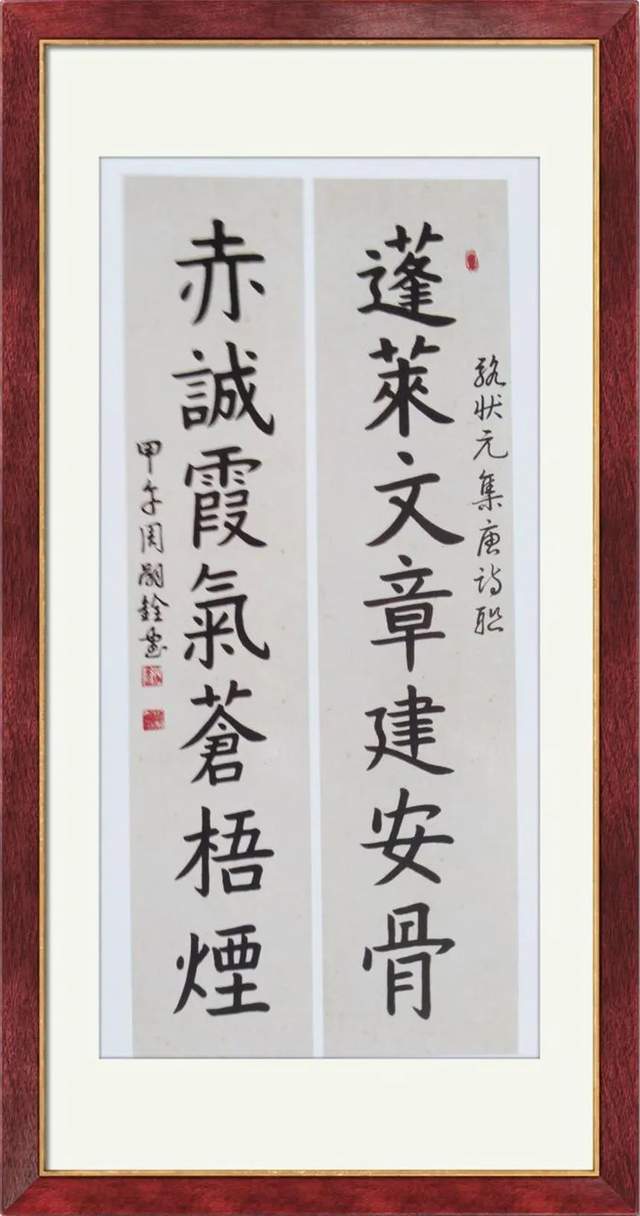 蓬萊文章建安骨
駱狀元集唐詩聯
赤誠霞氣蒼梧煙
甲午周嗣銓書